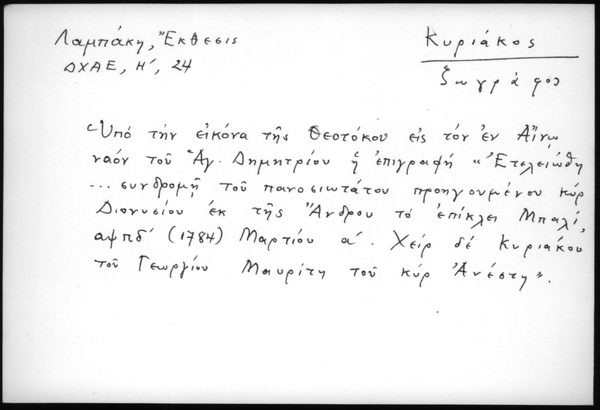 Λαμπάκη, Ἔκθεσις
ΔΧΑΕ, Η΄, 24
Κυριάκος
ζωγράφος
Ὑπό τήν εἰκόνα τῆς Θεοτόκου εἰς τόν ἐν Αἴνῳ
ναόν τοῦ Ἁγ. Δημητρίου ἡ ἐπιγραφή «Ἐτελειώθη
... συνδρομῇ τοῦ πανοσιωτάτου προηγουμένου κύρ
Διονυσίου ἐκ τῆς Ἄνδρου τό ἐπίκλει Μπαλί,
αψπδ΄ (1784) Μαρτίου α΄. Χείρ δέ Κυριάκου
τοῦ Γεωργίου Μαυρίτη τοῦ κύρ Ἀνέστη».